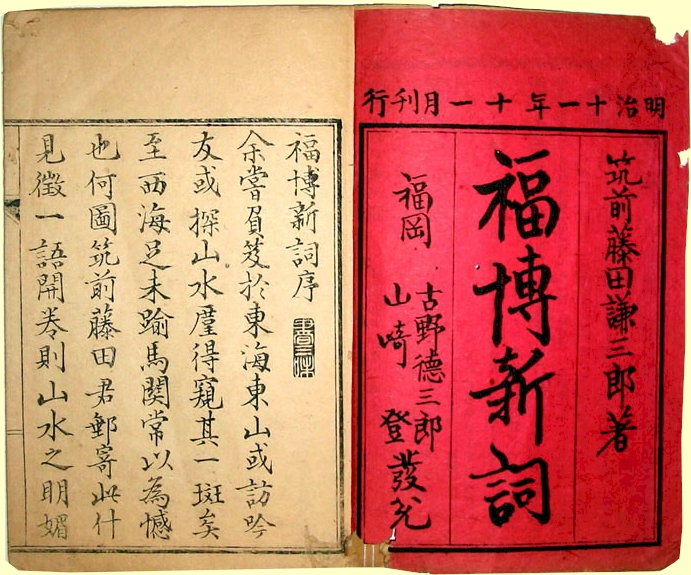 明治十一年十一月刊行
筑前藤田謙三郎著
福博新詞
福岡
古野德三郎
山崎 登
發兌
福博新詞序
余嘗負笈於東海東山或訪吟
友或探山水廑得窺其一斑矣
至西海足未踰馬関常以為憾
也何圖筑前藤田君郵寄此什
見徵一語開卷則山水之明媚